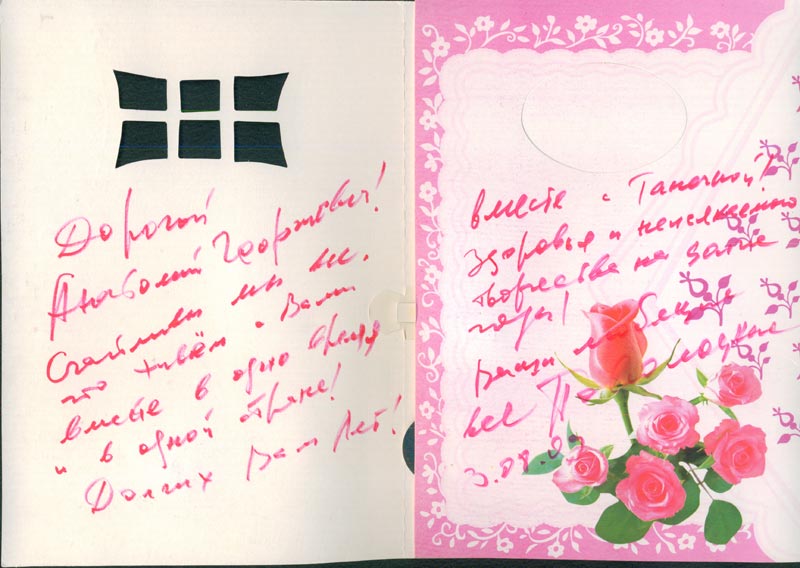 Дорогой
Анатолий Георгиевич!
Счастливы мы все,
что живём с Вами
вместе в одно время
и в одной стране!
Долгих Вам Лет!
вместе с Танечкой!
Здоровья и
творчества на
годы!
Ваши
все
3.09.